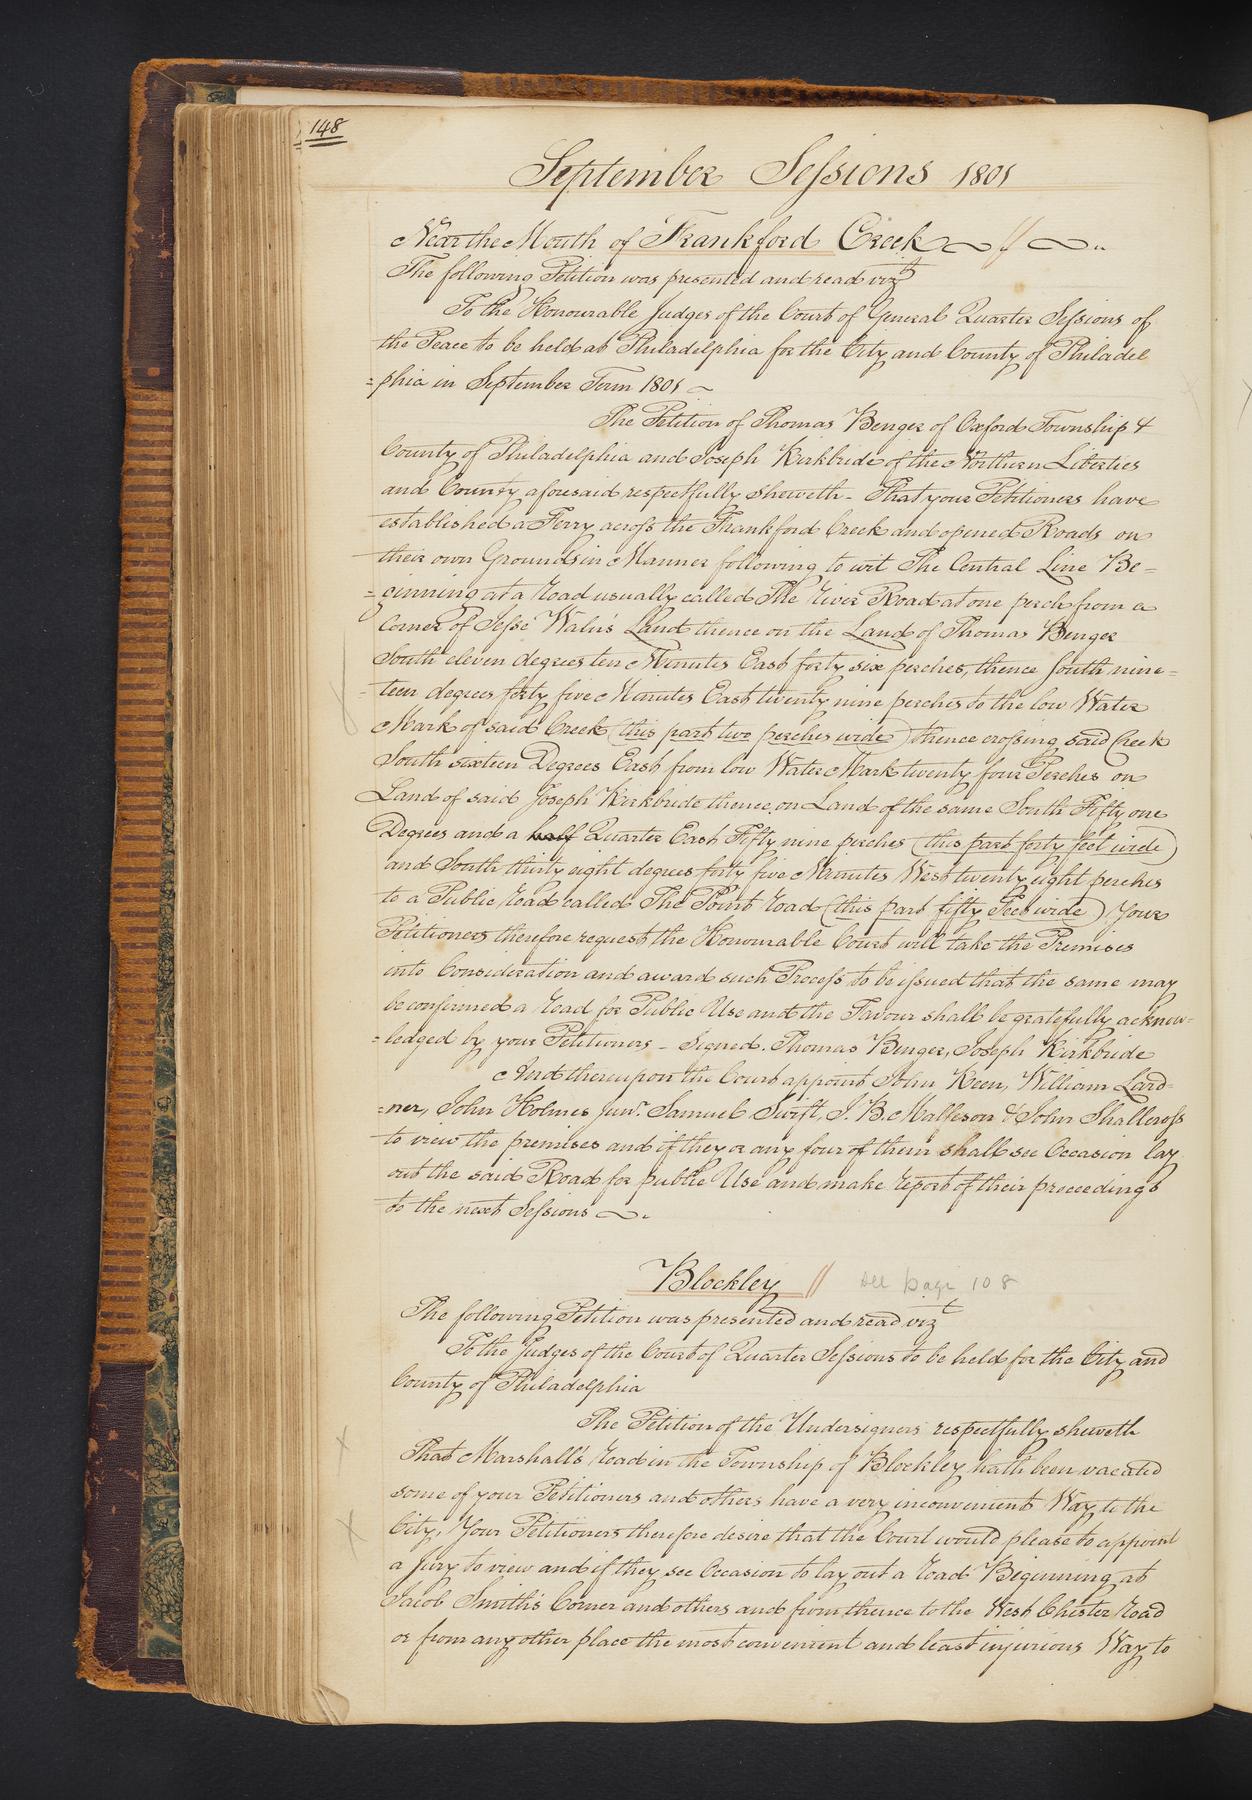 148
September Sessions 1801
Near the Mouth of Frankford Creek
The following Petition was presented and read vizt
To the Honourable Judges of the Court of General Quarter Sessions of
the Peace to be held at Philadelphia for the City and County of Philadel
=phia in September Term 1801
The Petition of Thomas Benger of Oxford Township &
County of Philadelphia and Joseph Kirkbride of the Northern Liberties
and County aforesaid respectfully sheweth - That your Petitioners have
established a Ferry across the Frankford Creek and opened Roads on
their own Grounds in Manner following to wit The Central Line Be-
=ginning at a road usually called The River Road at one perch from a
Corner of Jesse Waln's Land thence on the Land of Thomas Benger
South eleven degrees ten Minutes East forty six perches, thence South nine=
=teen degrees forty five Minutes East twenty nine perches to the low Water
Mark of said Creek (this part two perches wide) thence crossing said Creek
South sixteen Degrees East from low Water Mark twenty four Perches on
Land of said Joseph Kirkbride thence on Land of the same South Fifty one
Degrees and a half Quarter East Fifty nine perches (this part forty feet wide)
and South thirty eight degrees forty five Minutes West twenty eight perches
to a Public road called The Point road (this part fifty Feet wide) Your
Petitioners therefore request the Honourable Court will take the Premises
into Consideration and award such Process to be issued that the same may
be confirmed a road for Public Use and the Favour shall be gratefully acknow=
=ledged by your Petitioners - Signed. Thomas Benger, Joseph Kirkbride
And thereupon the Court appoint John Keen, William Lard=
=ner, John Holmes Junr. Samuel Swift, J. B. Malleson & John Shallcross
to view the premises and if they or any four of them shall see Occasion lay
out the said Road for public Use and make report of their proceedings
to the next Sessions
Blockley see page 108
The following Petition was presented and read vizt
To the Judges of the Court of Quarter Sessions to be held for the City and
County of Philadelphia
The Petition of the Undersigners respectfully sheweth
That Marshall's road in the Township of Blockley hath been vacated
some of your Petitioners and others have a very inconvenient Way to the
City, Your Petitioners therefore desire that the Court would please to appoint
a jury to view and if they see Occasion to lay out a road Beginning at
Jacob Smith's Corner and others and from thence to the West Chester road
or from any other place the most convenient and least injurious Way to